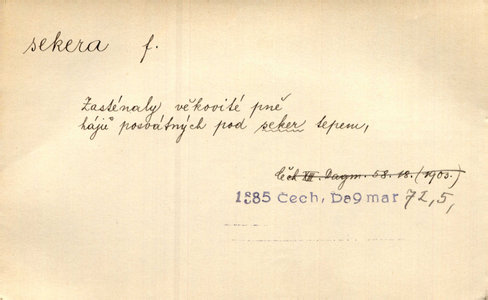 sekera f.
Zasténaly věkovité pně
hájů posvátných pod seker tepem,
Čch XII. Dagm. 58. 18. (1903.)
1885 Čech, Da9mar 72,5,